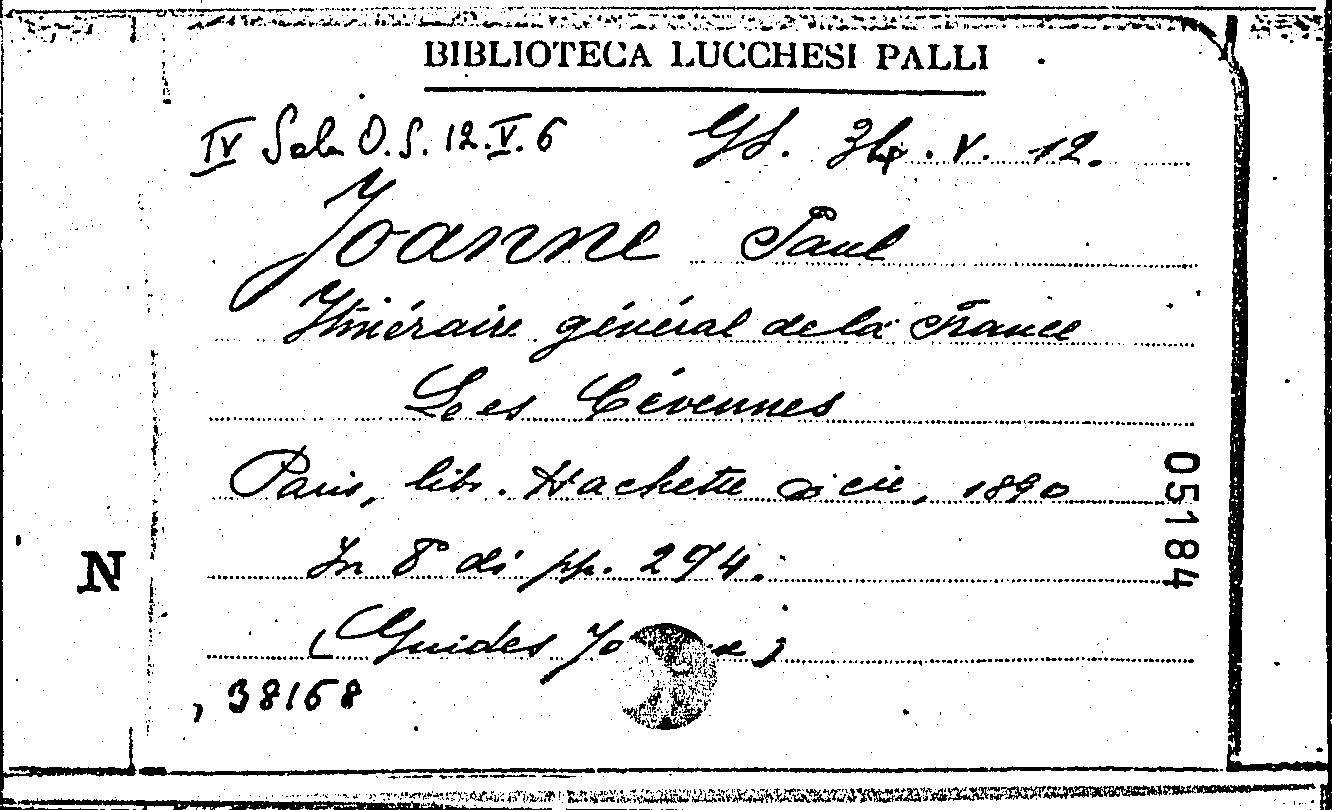 BIBLIOTECA LUCCHESI PALLI
IV Sala O.S. 12.V.6
V. 12.
Joanne Paul
Itinéraire général de la France
Les Cévennes
Paris, libr. Hachette cie, 1890
In 8° di pp. 294.
(Guides Jo e)
38168
N
05184